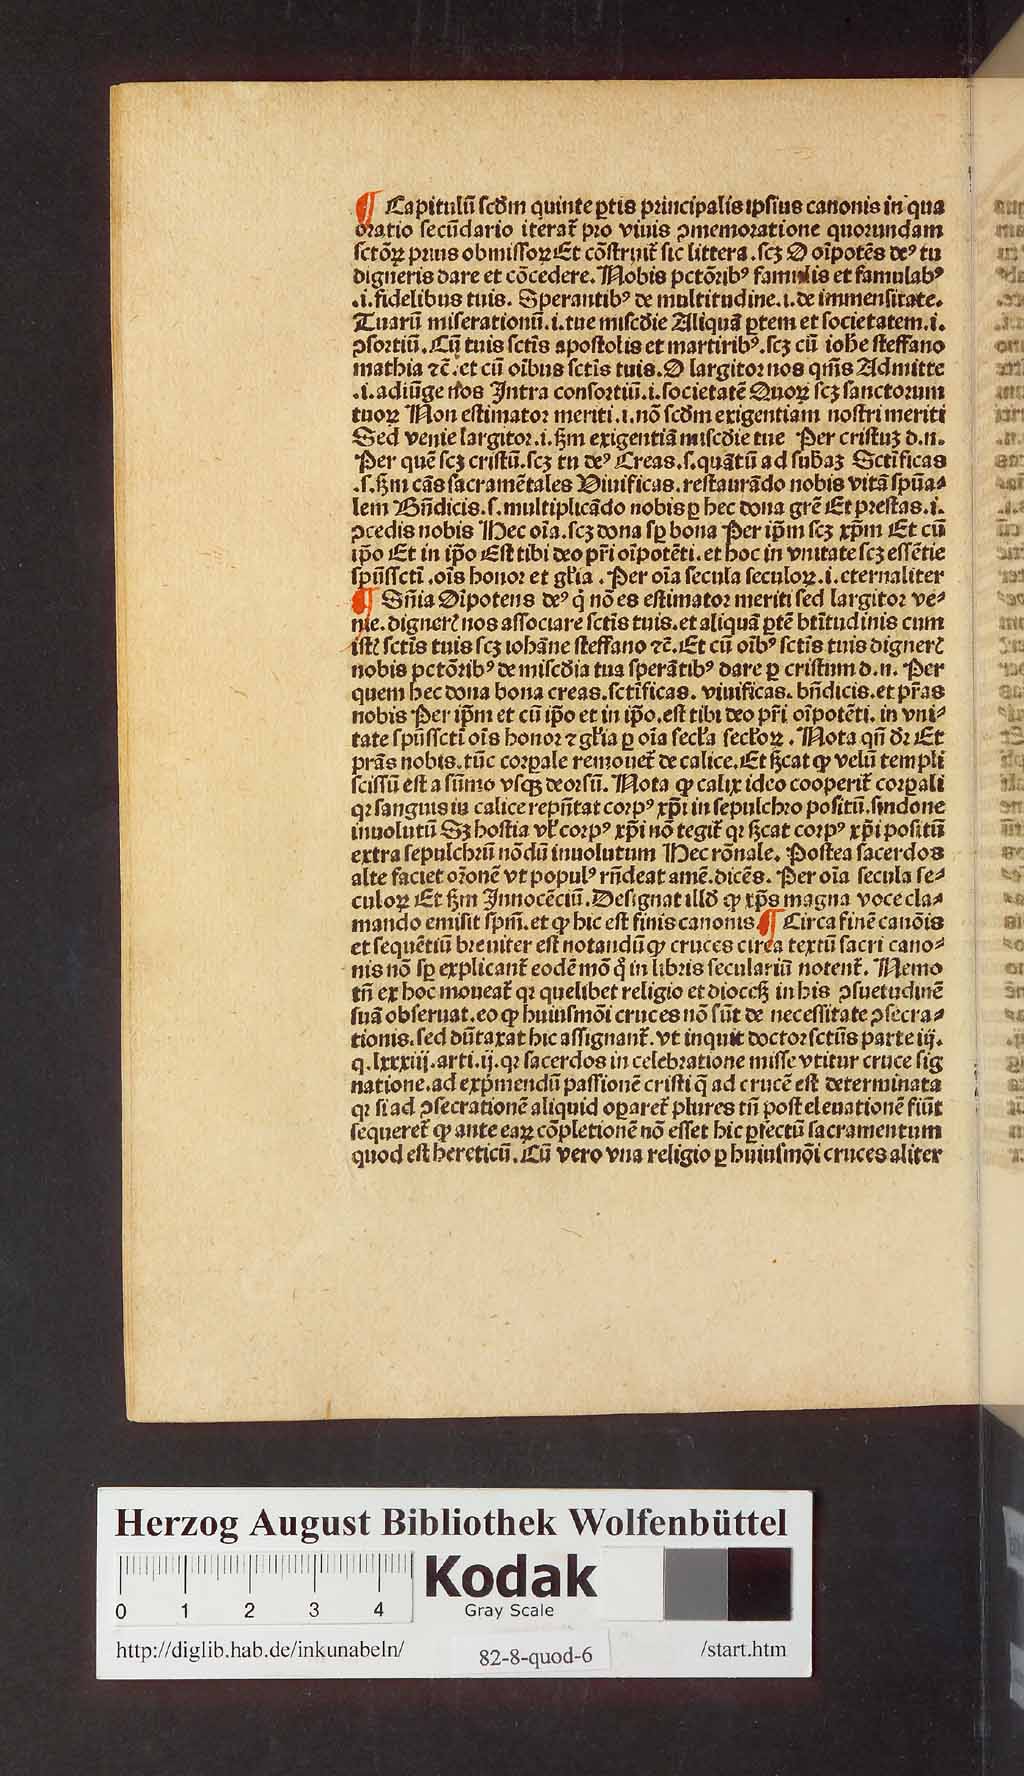 ¶ Capitulū scd̄m quinte ꝑtis principalis ipsius canonis in qua
oratio secūdario iterat᷑ pro viuis ꝯmemoratione quorundam
sctōꝝ prius obmissoꝝ Et cōstruit᷑ sic littera .scꝫ O oīpotēs deꝰ tu
digneris dare et cōcedere. Nobis pctōribꝰ famulis et famulabꝰ
.i. fidelibus tuis. Sperantibꝰ de multitudine .i. de immensitate.
Tuarū miserationū .i. tue miscd̄ie Aliquā ꝑtem et societatem .i.
ꝯsortiū. Cū tuis sctīs apostolis et martiribꝰ .scꝫ cū ioh̄e steffano
mathia ⁊c̄. et cū oībus sctīs tuis. O largitor nos qm̄s Admitte
.i. adiūge nos Intra consortiū .i. societatē Quoꝝ scꝫ sanctorum
tuoꝝ Non estimator meriti .i. nō scd̄m exigentiam nostri meriti
Sed venie largitor .i. ẜm exigentiā miscd̄ie tue Per cristuꝫ d.n.
Per quē scꝫ cristū .scꝫ tu deꝰ Creas .s. quātū ad subaꝫ Sctīficas
.s. ẜm cās sacramētales Viuificas . restaurādo nobis vitā spūa⸗
lem Bn̄dicis .s. multiplicādo nobis ꝑ hec dona grē Et prestas .i.
ꝯcedis nobis Hec oīa .scꝫ dona sꝑ bona Per ip̄m scꝫ xp̄m Et cū
ip̄o Et in ip̄o Est tibi deo pr̄i oīpotēti . et hoc in vnitate scꝫ essētie
spūssctī . oīs honor et gl̄ia . Per oīa secula seculoꝝ .i. eternaliter
¶ Sn̄ia Oīpotens deꝰ q̇ nō es estimator meriti sed largitor ve⸗
nie . digneris nos associare sctīs tuis . et aliquā ꝑtē btītudinis cum
istis sctīs tuis scꝫ iohāne steffano ⁊c̄. Et cū oībꝰ sctīs tuis digneris
nobis pctōribꝰ de miscd̄ia tua sperātibꝰ dare ꝑ cristum d.n. Per
quem hec dona bona creas . sctīficas . viuificas . bn̄dicis . et pr̄as
nobis Per ip̄m et cū ip̄o et in ip̄o . est tibi deo pr̄i oīpotēti . in vni⸗
tate spūssctī oīs honor ⁊ gl̄ia ꝑ oīa secl̄a secl̄oꝝ . Nota qn̄ dr̄ Et
prās nobis . tūc corꝑale remouet᷑ de calice . Et ẜcat ꝙ velū templi
scissū est a sūmo vsqꝫ deorsū . Nota ꝙ calix ideo cooperit᷑ corꝑali
qꝛ sanguis in calice repn̄tat corpꝰ xp̄i in sepulchro positū . sindone
inuolutū Sꝫ hostia vl̄ corpꝰ xp̄i nō tegit᷑ qꝛ ẜcat corpꝰ xp̄i positū
extra sepulchrū nōdū inuolutum Hec rōnale . Postea sacerdos
alte faciet or̄onē vt populꝰ rn̄deat amē . dicēs . Per oīa secula se⸗
culoꝝ Et ẜm Innocēciū . Designat illd̄ ꝙ xp̄s magna voce cla⸗
mando emisit spm̄ . et ꝙ hic est finis canonis ¶ Circa finē canōis
et sequētiū breuiter est notandū ꝙ cruces circa textū sacri cano⸗
nis nō sꝑ explicant᷑ eodē mō q̇ in libris seculariū notent᷑ . Nemo
tn̄ ex hoc moueat᷑ qꝛ quelibet religio et diocesis in his ꝯsuetudinē
suā obseruat . eo ꝙ huiusmōi cruces nō sūt de necessitate ꝯsecra⸗
tionis . sed dūtaxat hic assignant᷑ . vt inquit doctor sctūs parte iij.
q . lxxxiij . arti . ij . qꝛ sacerdos in celebratione misse vtitur cruce sig
natione . ad exp̄mendū passionē cristi q̄ ad crucē est determinata
qꝛ si ad ꝯsecrationē aliquid oꝑaret᷑ plures tn̄ post eleuationē fiūt
sequeret᷑ ꝙ ante eaꝝ cōpletionē nō esset hic ꝑfectū sacramentum
quod est hereticū . Cū vero vna religio ꝑ huiusmōi cruces aliter
Herzog August Bibliothek Wolfenbüttel
0 1 2 3 4
Kodak
Gray Scale
http://diglib.hab.de/inkunabeln/ 82-8-quod-6 /start.htm